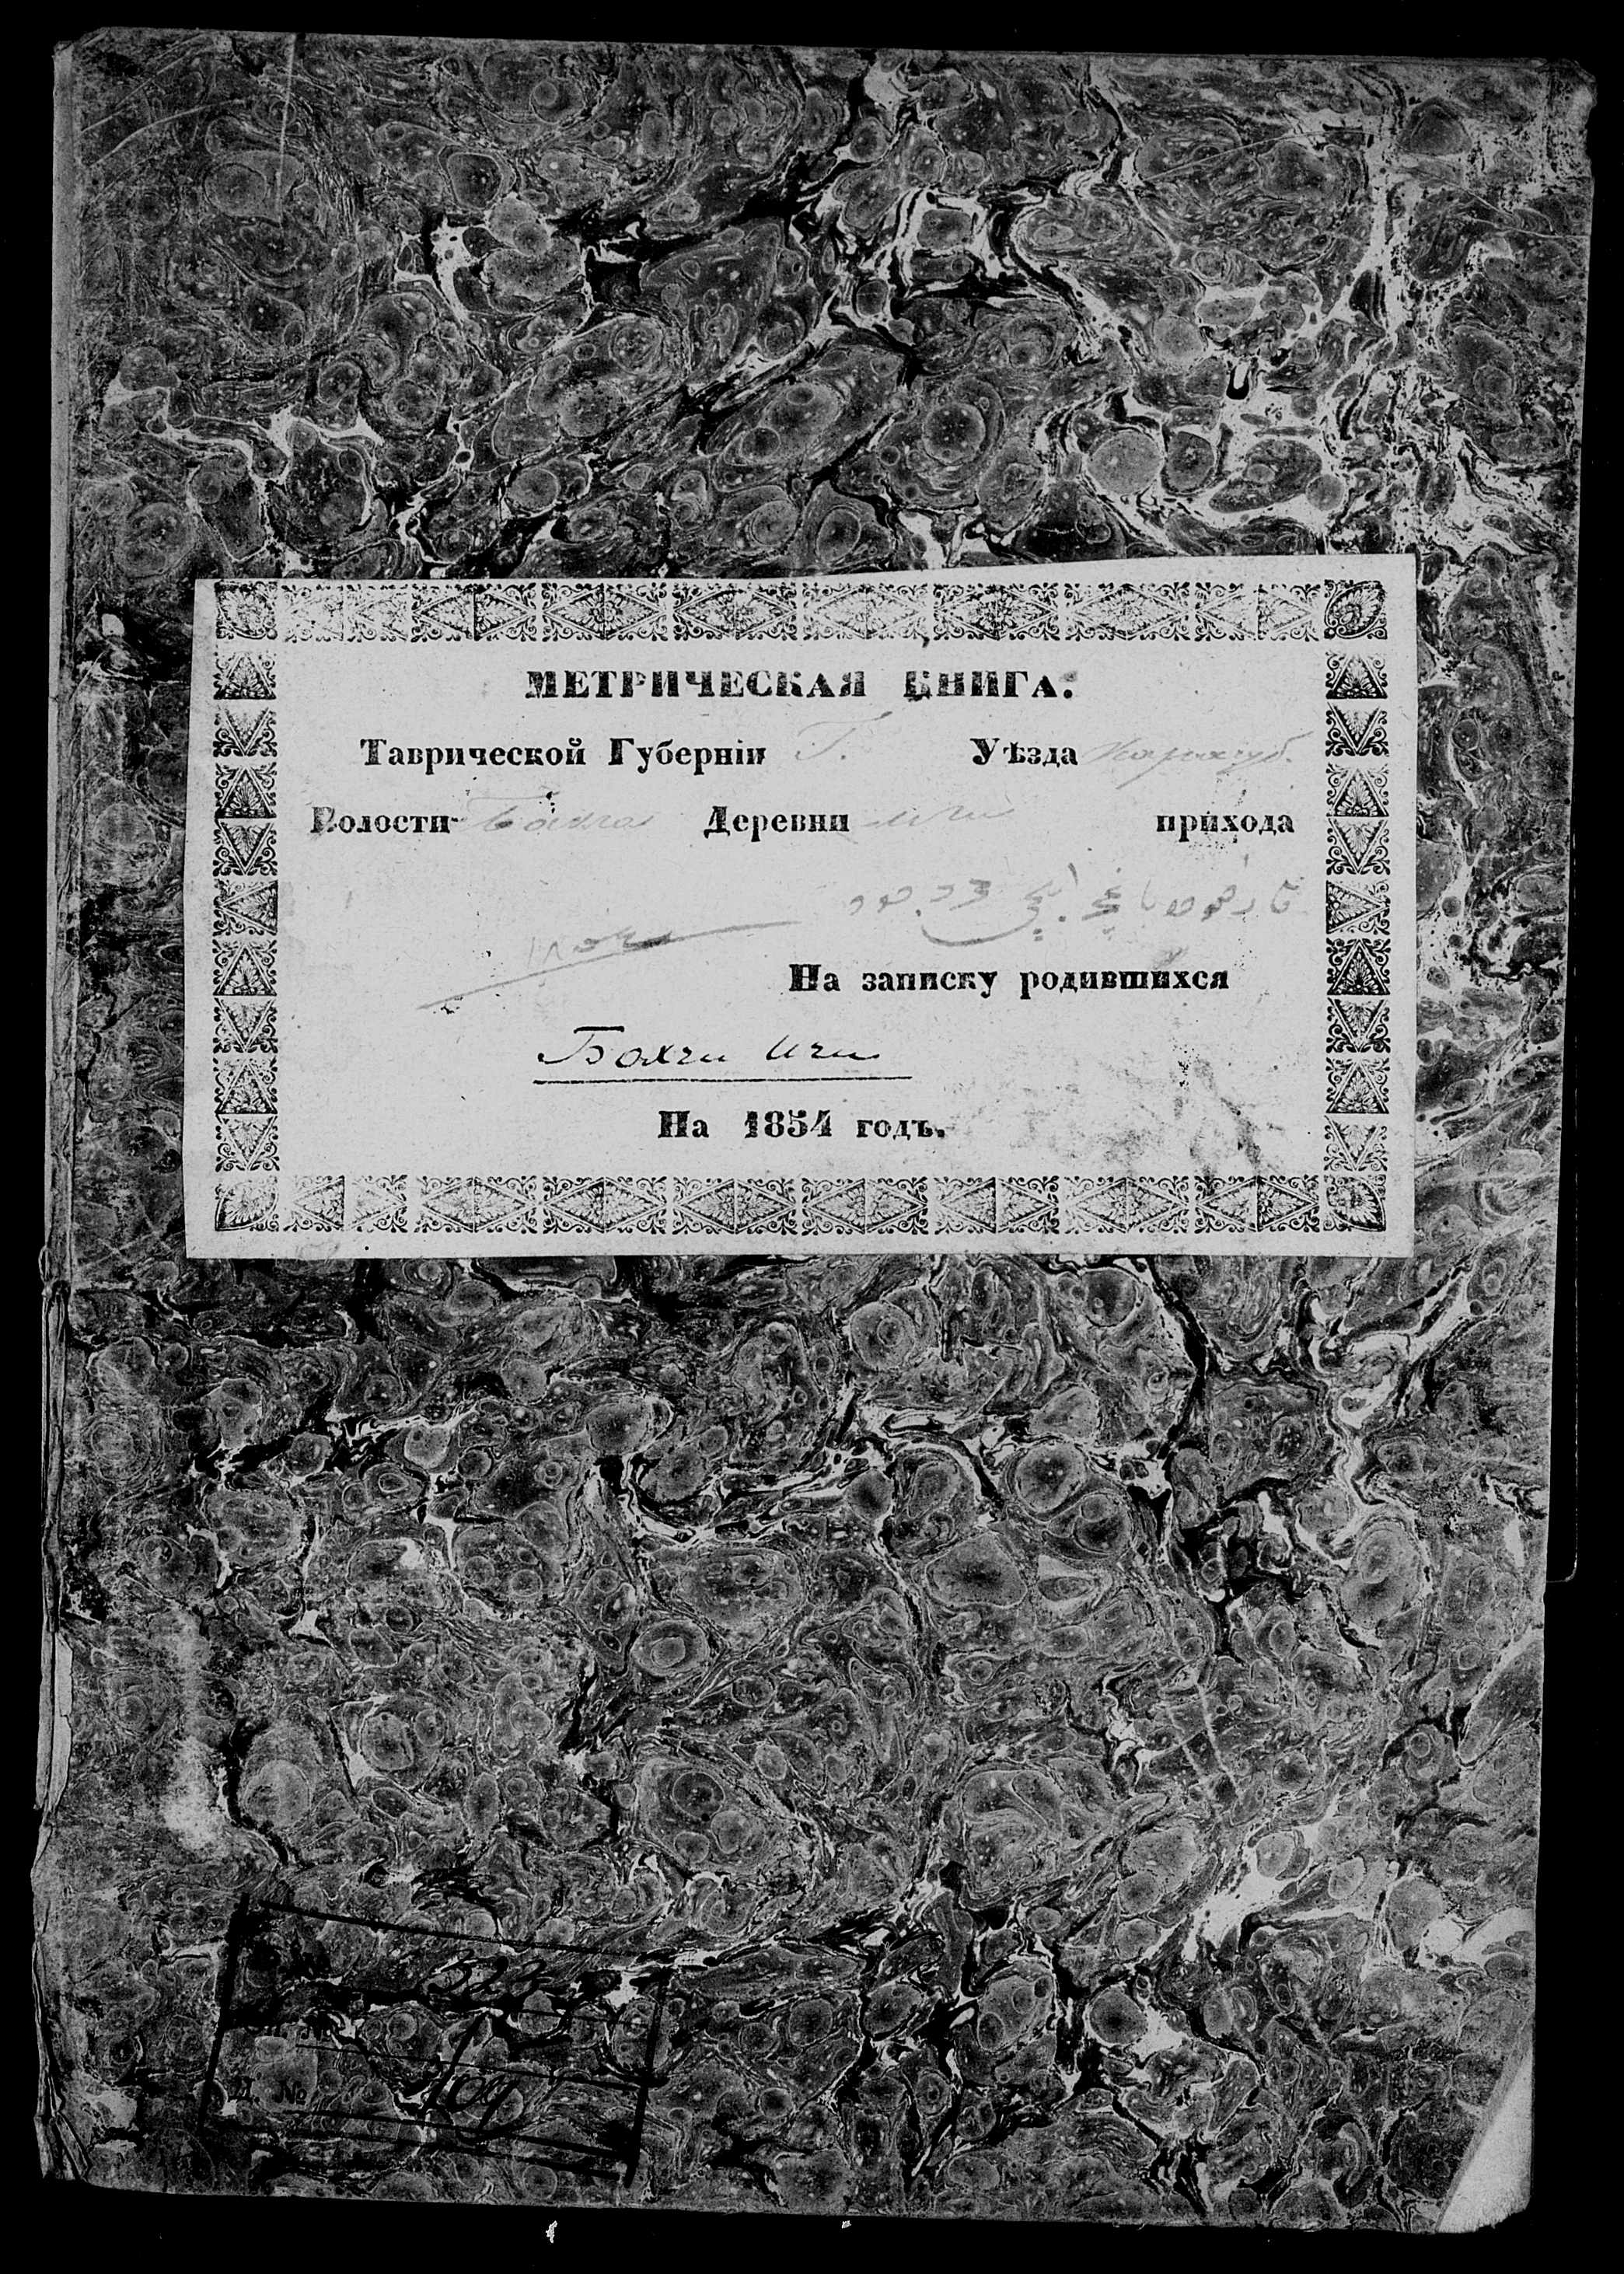 МЕТРИЧЕСКАЯ КНИГА.
Таврической Губерніи Г. Уѣзда
Волости Бахча Деревни ичи прихода
١٨٥٤
На записку родившихся
Бахчи Ичи
На 1854 годъ.
323
Д. № 109